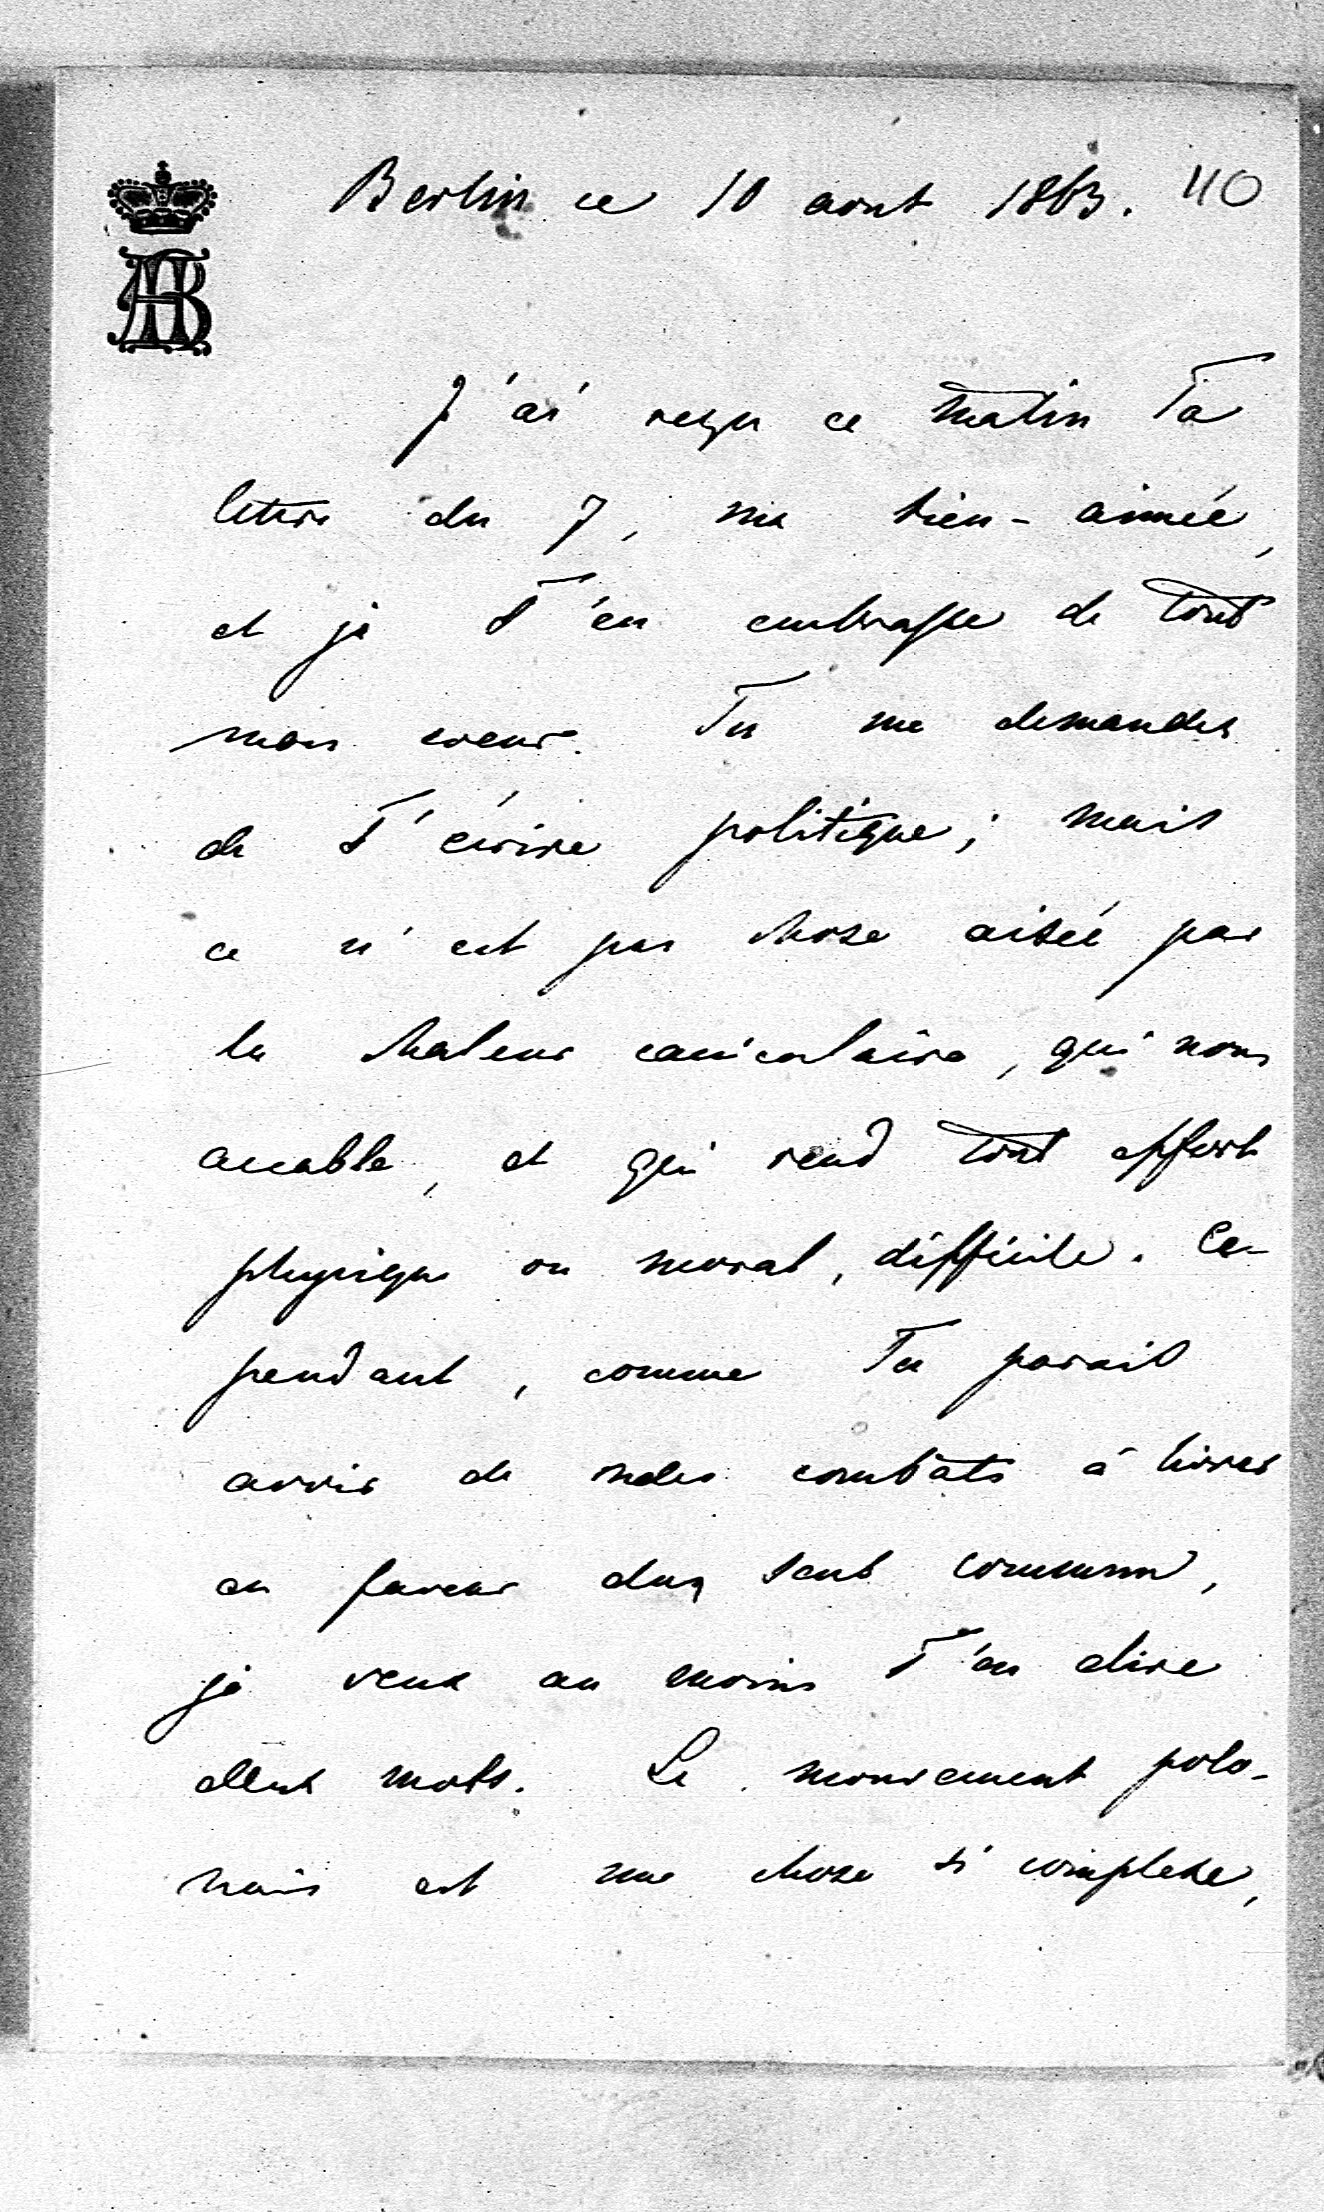 Berlin ce 10 aout 1863. 40
AB
J'ai reçu ce matin Ta
lettre du 7, ma bien-aimée,
et je T'en embrasse de tout
mon coeur. Tu me demandes
de T'écrire politique; mais
ce n'est pas chose aisée par
la chaleur caniculaire, qui nous
accable, et qui rend tout effort
physique ou moral, difficile. Ce-
pendant, comme Tu parait
avoir de combats à livrer
en faveur du sens commun,
je veux au moins T'en dire
deux mots. Le mouvement polo-
nais est une chose si complexe,